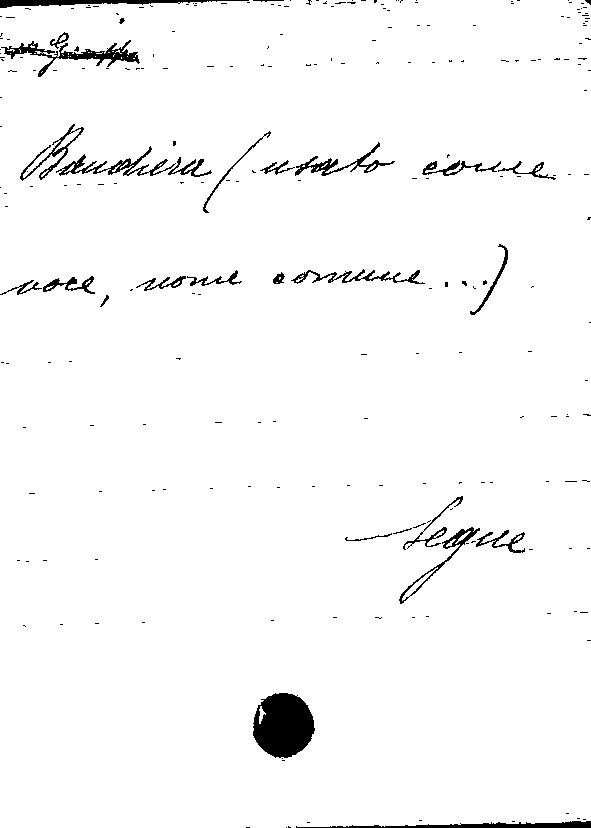 Bandiera (usato come
voce, nome comune...)
Segue